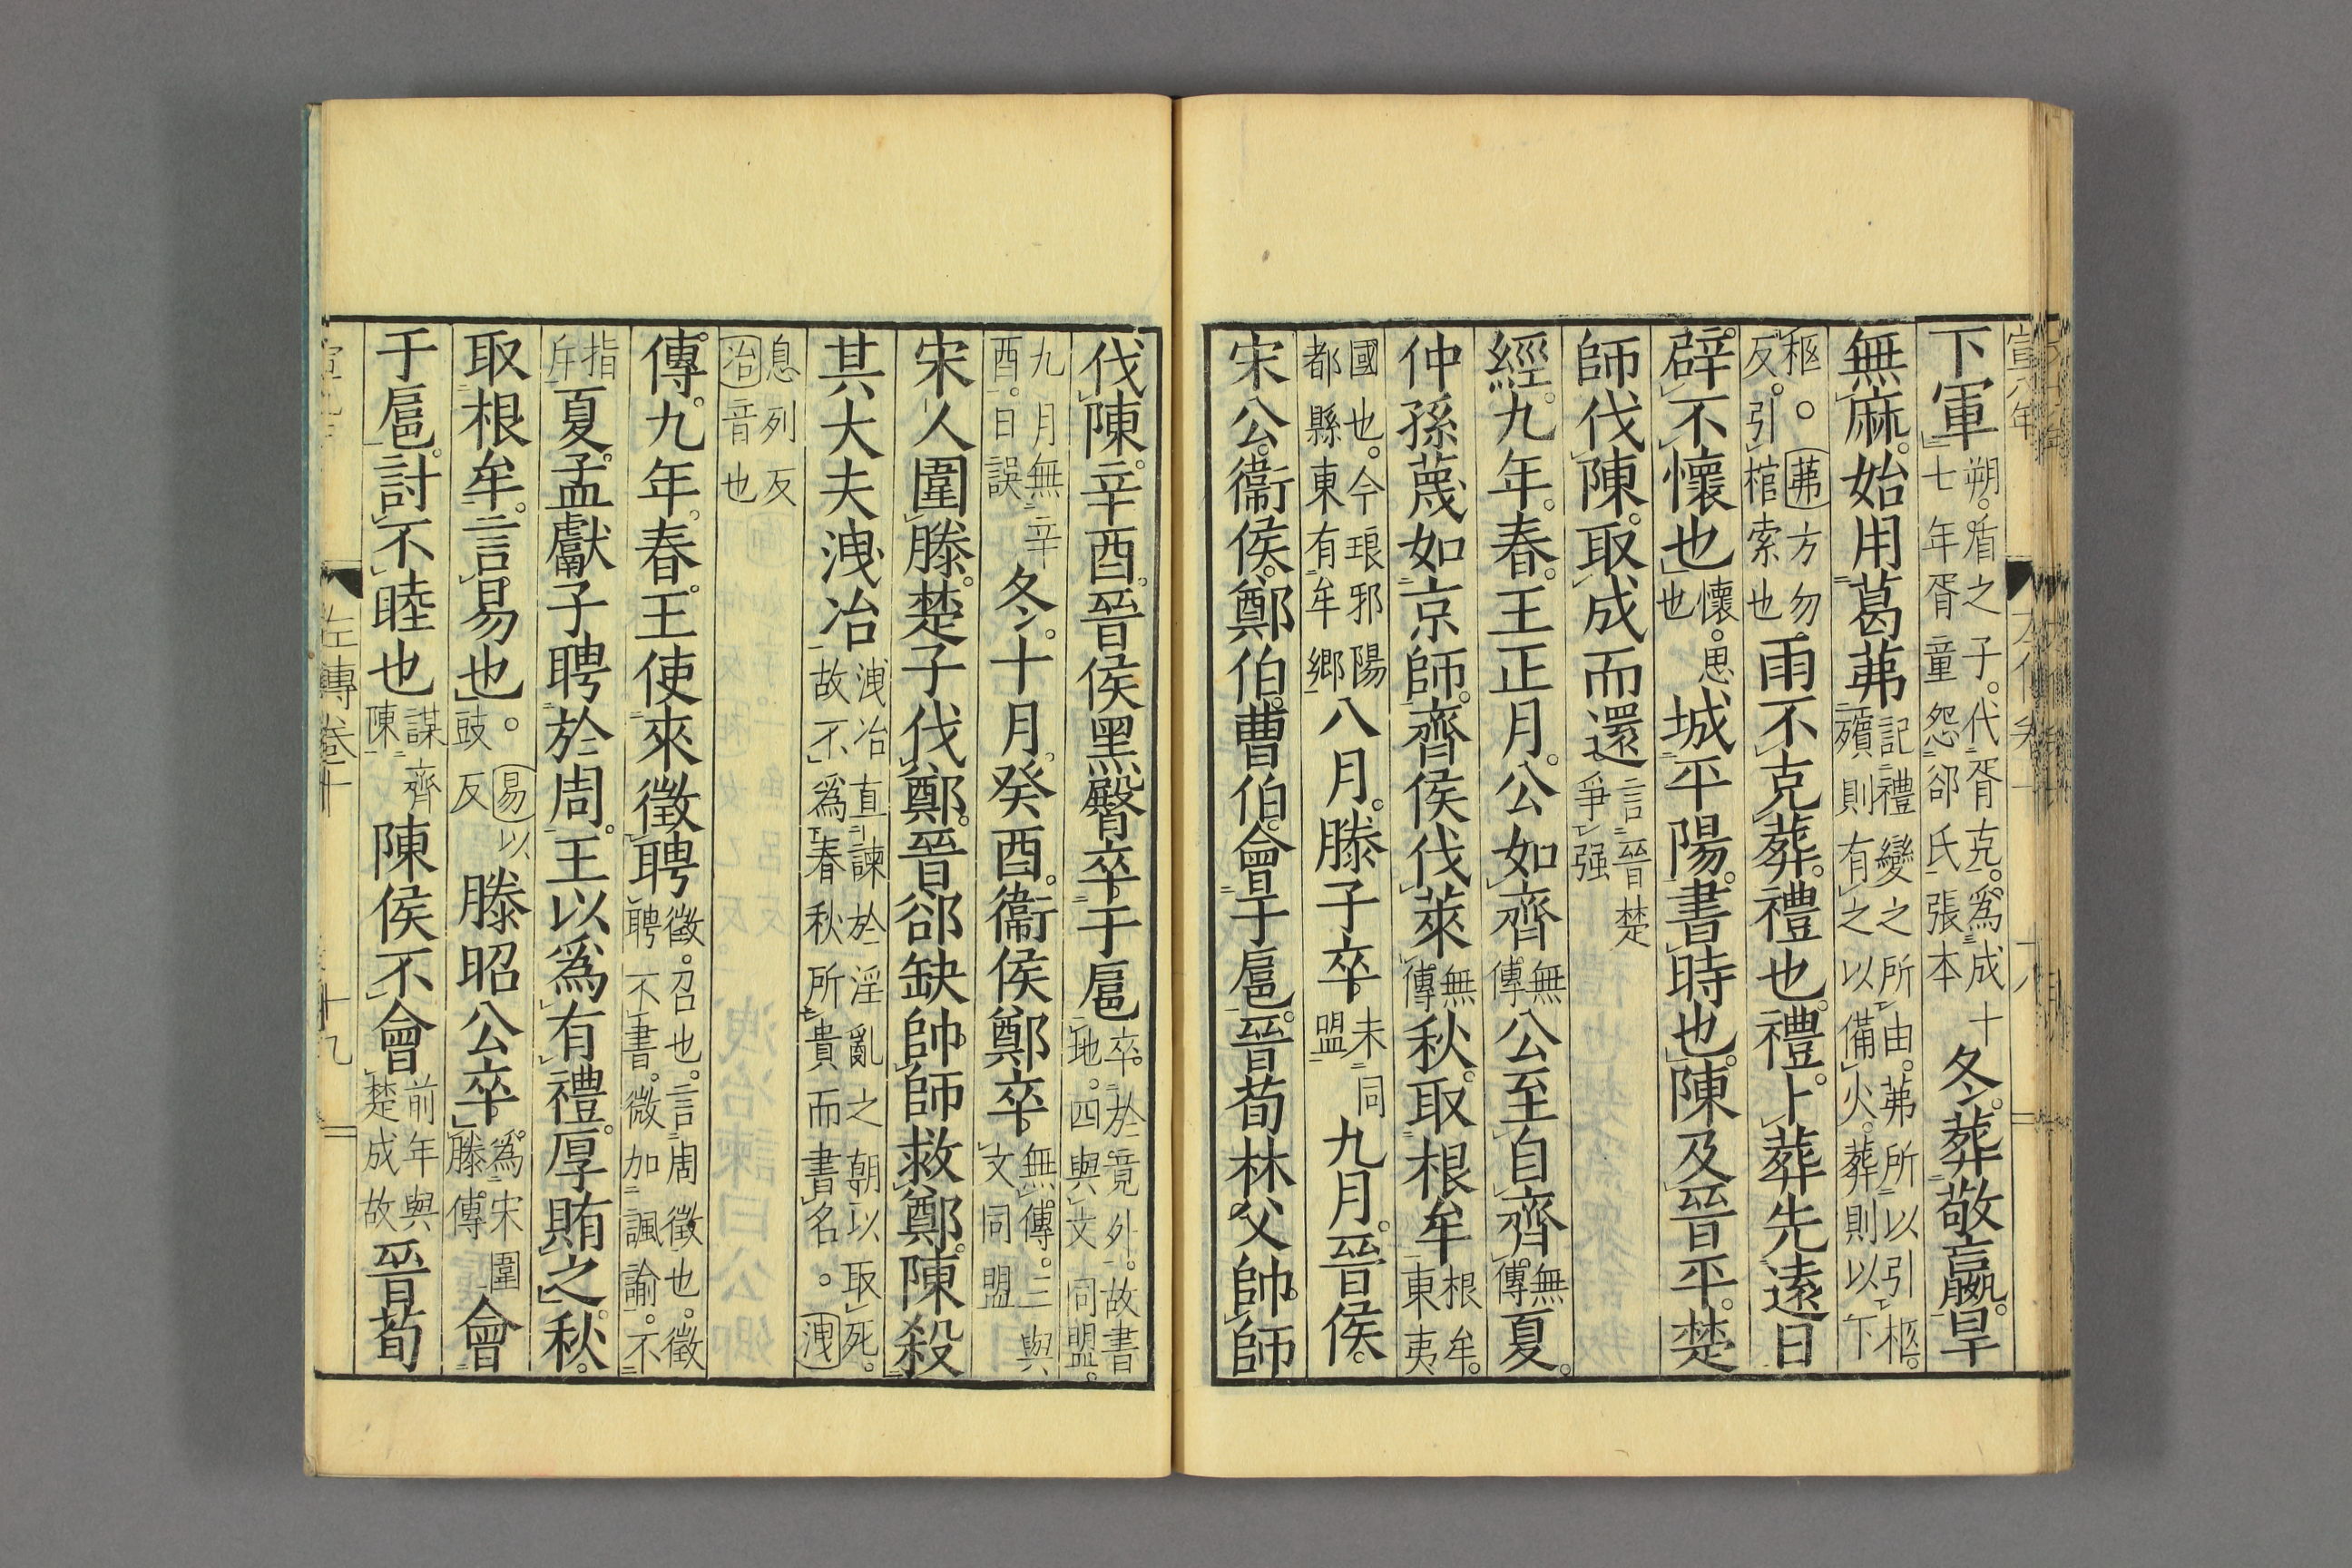 下軍朔。盾之子。代胥克。爲成十七年胥童怨郤氏張本冬。葬敬嬴。旱
無麻。始用葛茀記禮變之所由。茀所以引柩。殯則有之以備火。葬則以下
柩。○茀方勿反。引棺索也雨不克葬。禮也。禮。卜葬先遠日
辟不懷也懷。思也城平陽。書時也。陳及晉平。楚
師伐陳。取成而還言晉楚爭強
經。九年。春。王正月。公如齊無傳公至自齊無傳夏。
仲孫蔑如京師。齊侯伐萊。無傳秋。取根牟根牟。東夷
國也。今琅邪陽都縣東有牟鄉八月。滕子卒。未同盟九月。晉侯。
宋公。衞侯。鄭伯。曹伯。會于扈。晉荀林父帥師
伐陳。辛酉。晉侯黑臀卒于扈卒於竟外。故書地。四與文同盟。
九月無辛酉。日誤冬。十月。癸酉。衞侯鄭卒。無傳。三與文同盟
宋人圍滕。楚子伐鄭。晉郤缺帥師救鄭。陳殺
其大夫洩冶洩冶直諫於淫亂之朝以取死。故不爲春秋所貴而書名。洩
息列反冶音也
傳。九年。春。王使來徵聘徵。召也。言周徵也。徵聘不書。微加諷諭。不
指斥夏。孟獻子聘於周。王以爲有禮。厚賄之。秋。
取根牟。言易也。○易以豉反滕昭公卒。爲宋圍滕傳。會
于扈。討不睦也謀齊陳陳侯不會前年與楚成故晉荀
宣八年
十八
左傳卷十
十九